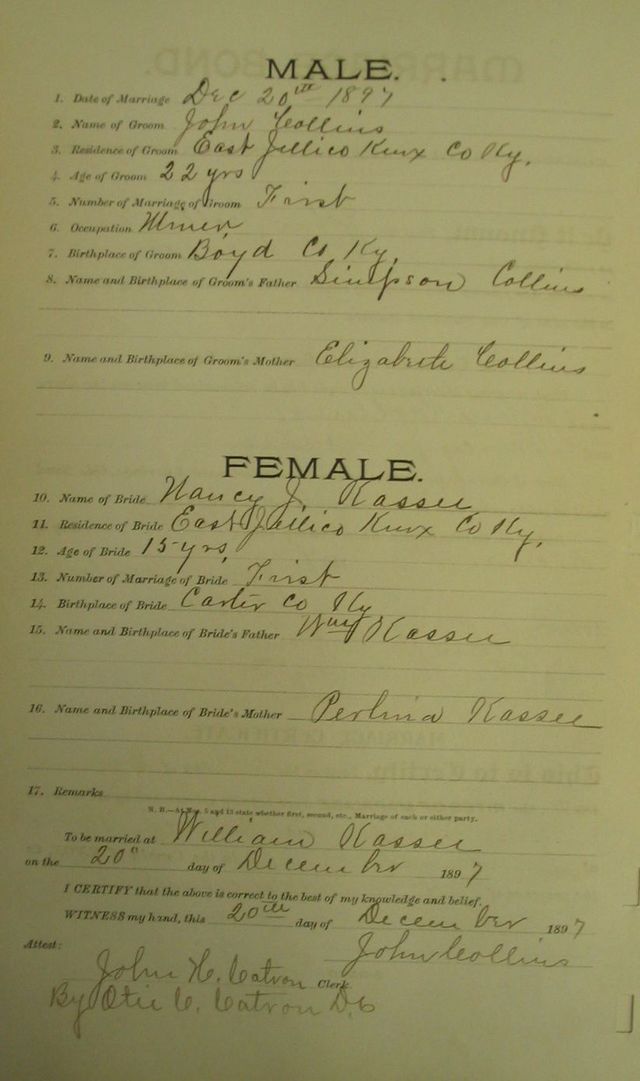 MALE.
1. Date of Marriage Dec 20th 1897
2. Name of Groom John Collins
3. Residence of Groom East Jellico Knox Co Ky.
4. Age of Groom 22 yrs
5. Number of Marriage of Groom First
6. Occupation Miner
7. Birthplace of Groom Boyd Co Ky.
8. Name and Birthplace of Groom's Father Simpson Collins
9. Name and Birthplace of Groom's Mother Elizabeth Collins
FEMALE.
10. Name of Bride Nancy J. Kassee
11. Residence of Bride East Jellico Knox Co Ky.
12. Age of Bride 15 yrs,
13. Number of Marriage of Bride First
14. Birthplace of Bride Carter Co Ky
15. Name and Birthplace of Bride's Father Wm Kassee
16. Name and Birthplace of Bride's Mother Perlina Kassee
17. Remarks
N. B.—At Nos. 5 and 13 state whether first, second, etc., Marriage of each or either party.
To be married at William Kassee
on the 20" day of December 1897
I CERTIFY that the above is correct to the best of my knowledge and belief.
WITNESS my hand, this 20th day of December 1897
John Collins
Attest:
John H. Catron Clerk
By Otie C. Catron D.C